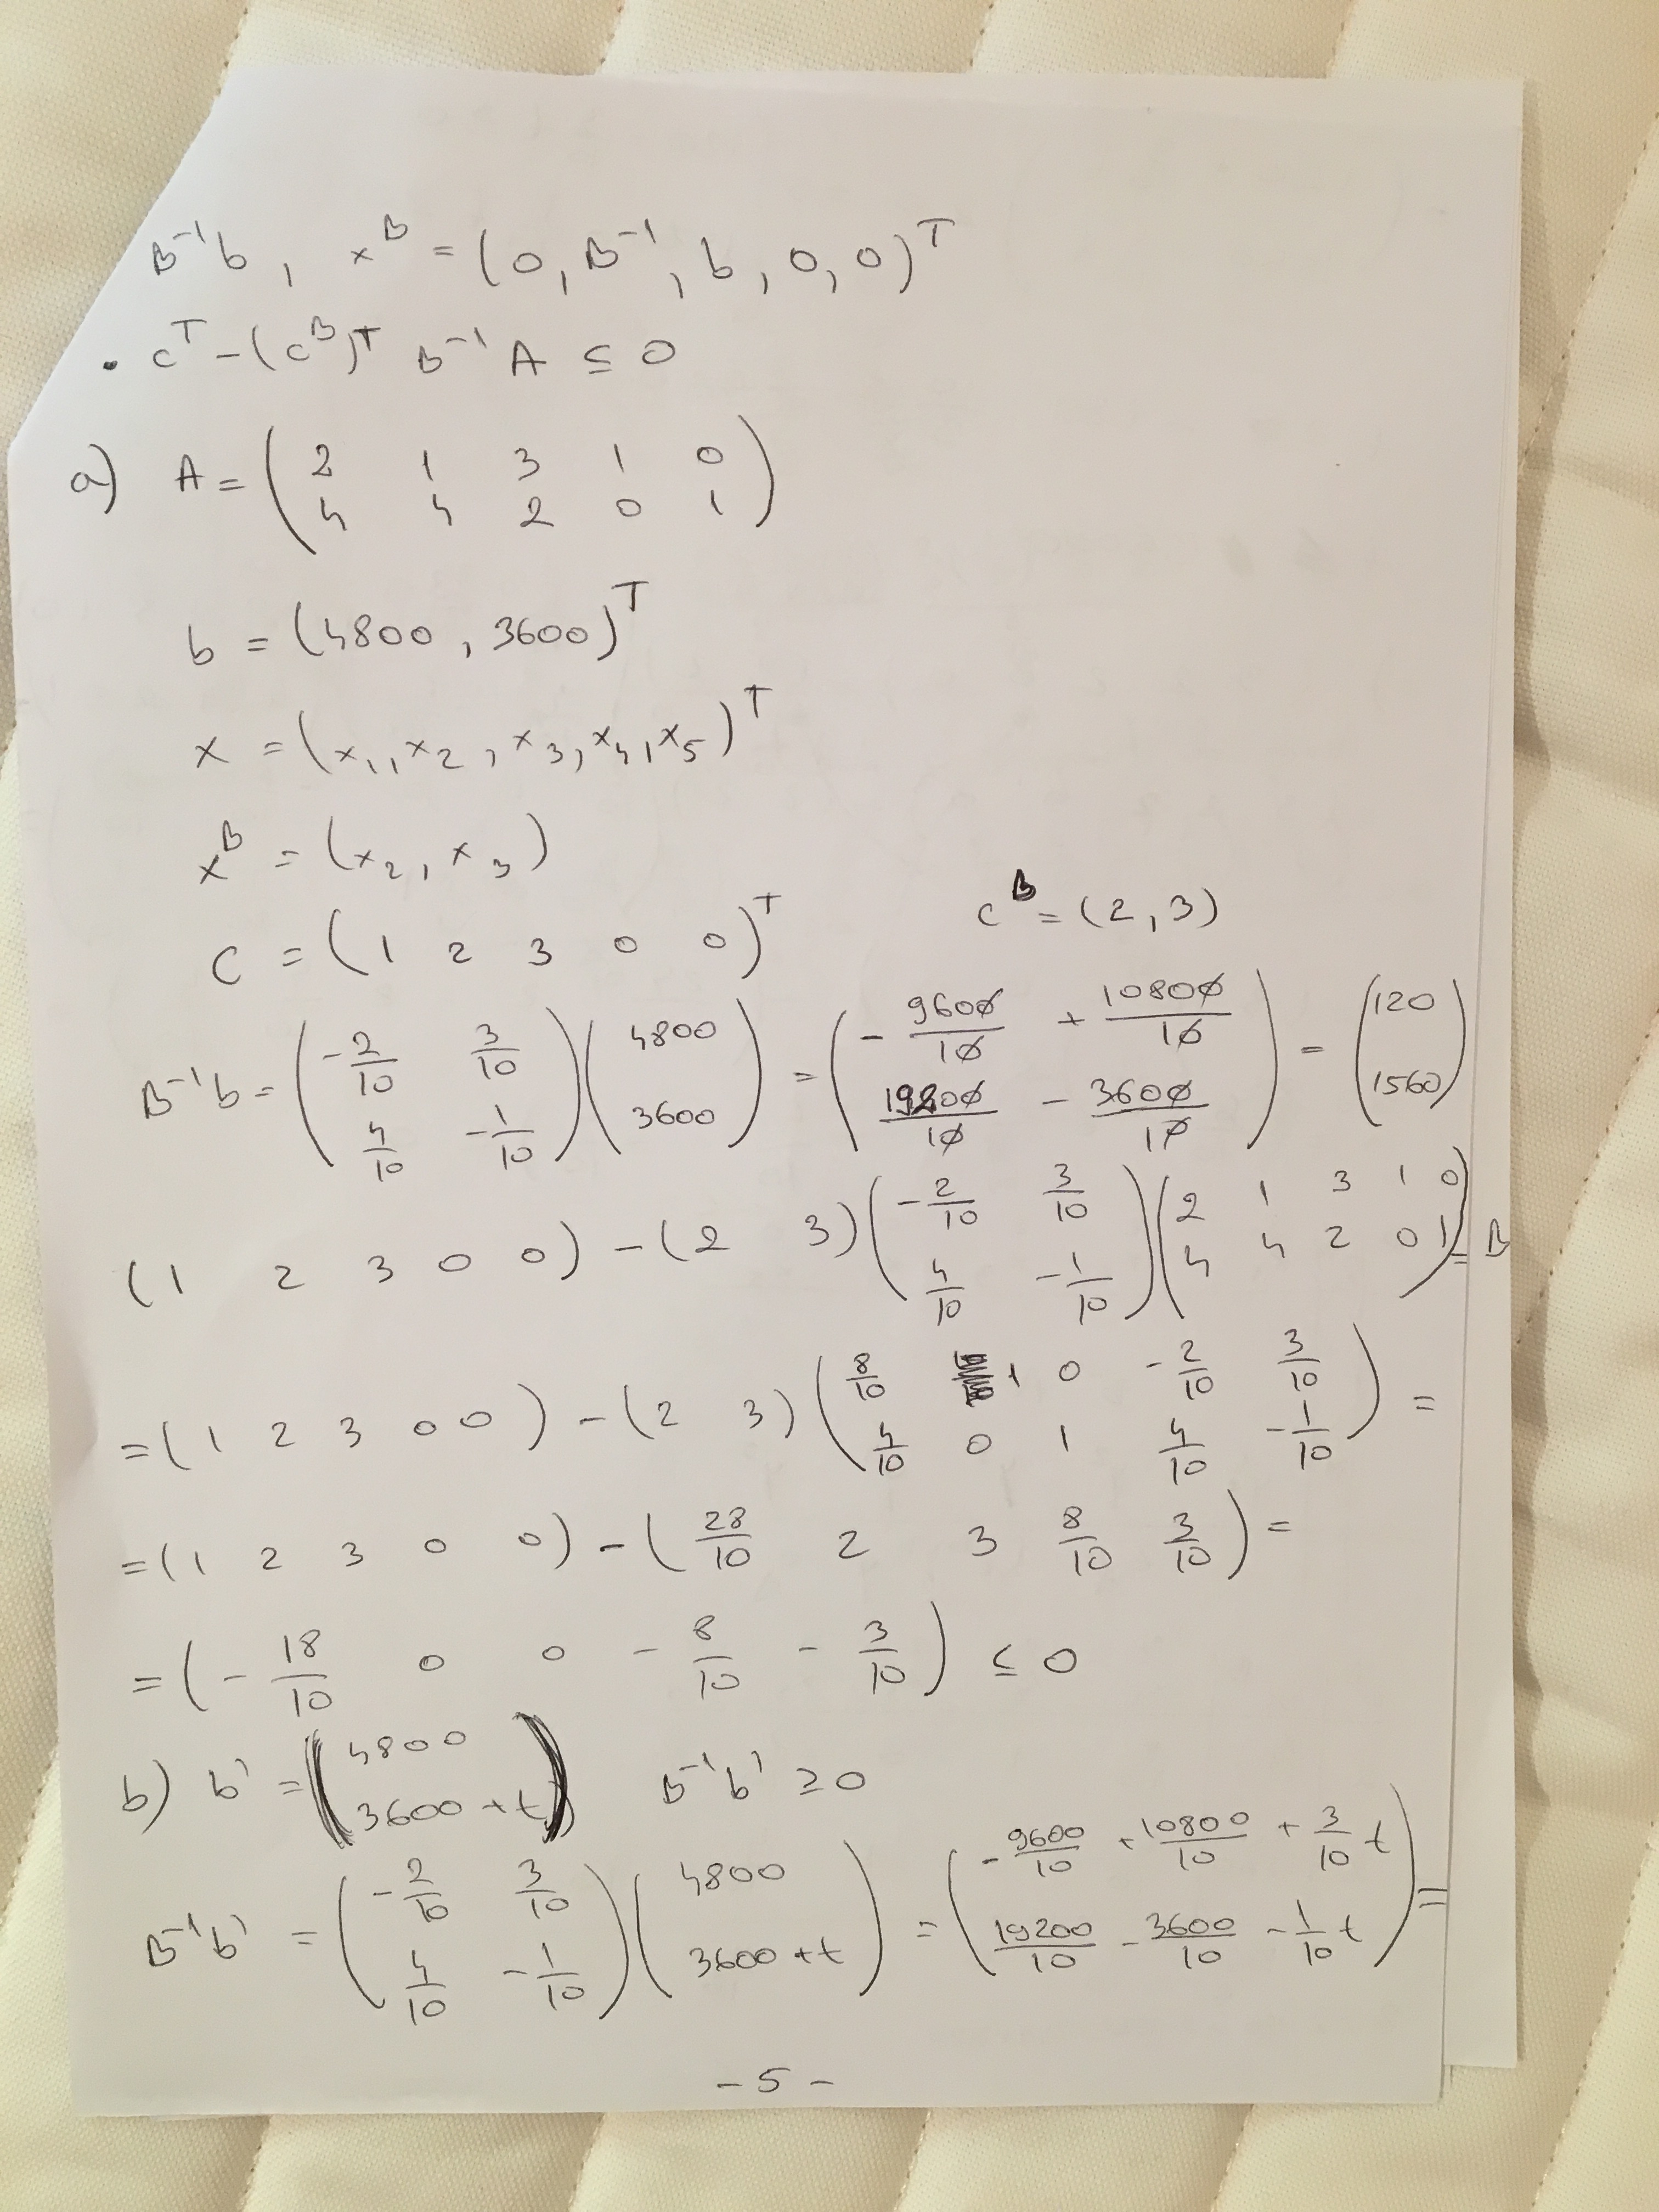 B⁻¹b, x^B = (0, B⁻¹, b, 0, 0)^T
• c^T − (c^B)^T B⁻¹ A ≤ 0
a) A = ( 2 1 3 1 0
4 4 2 0 1 )
b = (4800, 3600)^T
x = (x₁, x₂, x₃, x₄, x₅)^T
x^B = (x₂, x₃)
c^B = (2, 3)
c = (1 2 3 0 0)^T
B⁻¹b = ( −2/10 3/10 ; 4/10 −1/10 ) ( 4800 ; 3600 ) = ( −9600/10 + 10800/10 ; 19200/10 − 3600/10 ) = ( 120 ; 1560 )
(1 2 3 0 0) − (2 3) ( −2/10 3/10 ; 4/10 −1/10 ) ( 2 1 3 1 0 ; 4 4 2 0 1 ) =
= (1 2 3 0 0) − (2 3) ( 8/10 1 0 −2/10 3/10 ; 4/10 0 1 4/10 −1/10 ) =
= (1 2 3 0 0) − ( 28/10 2 3 8/10 3/10 ) =
= ( −18/10 0 0 −8/10 −3/10 ) ≤ 0
b) b' = ( 4800 ; 3600 + t ) B⁻¹b' ≥ 0
B⁻¹b' = ( −2/10 3/10 ; 4/10 −1/10 ) ( 4800 ; 3600 + t ) = ( −9600/10 + 10800/10 + 3/10 t ; 19200/10 − 3600/10 − 1/10 t ) =
− 5 −